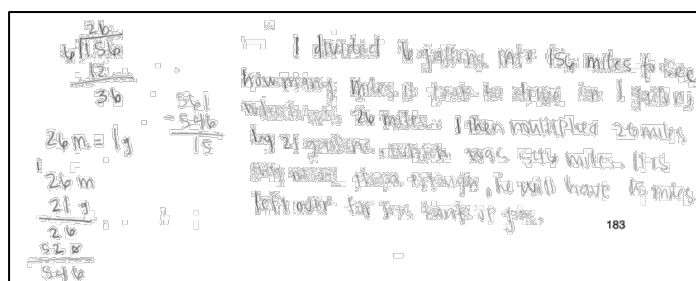 26
6)156
12
36
26 m = 1g
26 m
21 g
26
520
546
561
-546
15
I divided 6 gallons into 156 miles to see
how many miles it took to drive for 1 gallon
was 26 miles. I then multiplied 26 miles
by 21 gallons which was 546 miles. It is
enough, he will have 15 miles
left over for his tanks of gas.
183